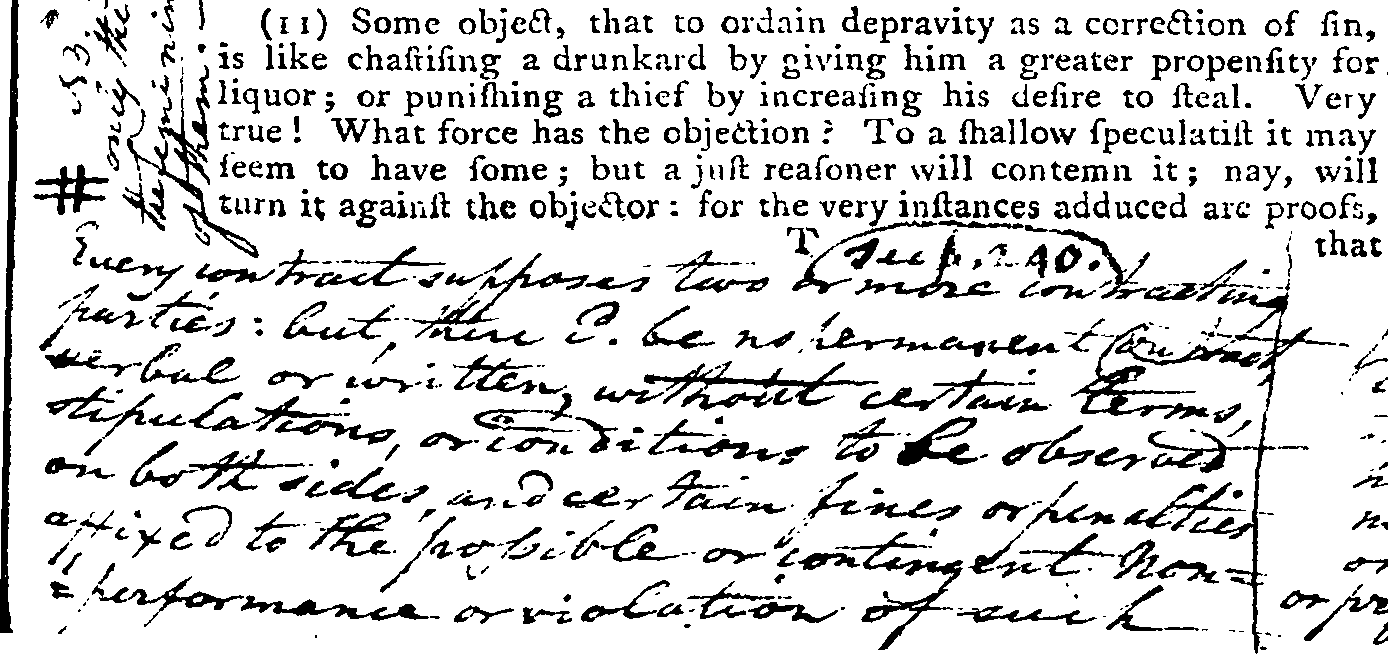 (11) Some object, that to ordain depravity as a correction of ſin,
is like chaſtiſing a drunkard by giving him a greater propenſity for
liquor; or puniſhing a thief by increaſing his deſire to ſteal. Very
true! What force has the objection? To a ſhallow ſpeculatiſt it may
ſeem to have ſome; but a juſt reaſoner will contemn it; nay, will
turn it againſt the objector: for the very inſtances adduced are proofs,
T that
See p. 240.
Every contract supposes two or more contracting
parties: but, there cd. be no permanent contract
verbal or written, without certain terms,
stipulations, or conditions to be observed
on both sides, and certain fines or penalties
affixed to the poſsible or contingent Non=
=performance or violation of such
only the
of them.
#
or